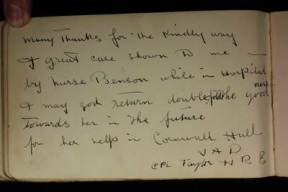 Many thanks for the Kindly way
& great care shown to me
by Nurse Benson while in Hospital
& may god return double the good
towards her in the future
for her help in Cornwall Hall
V A D
CPL Taylor N R E